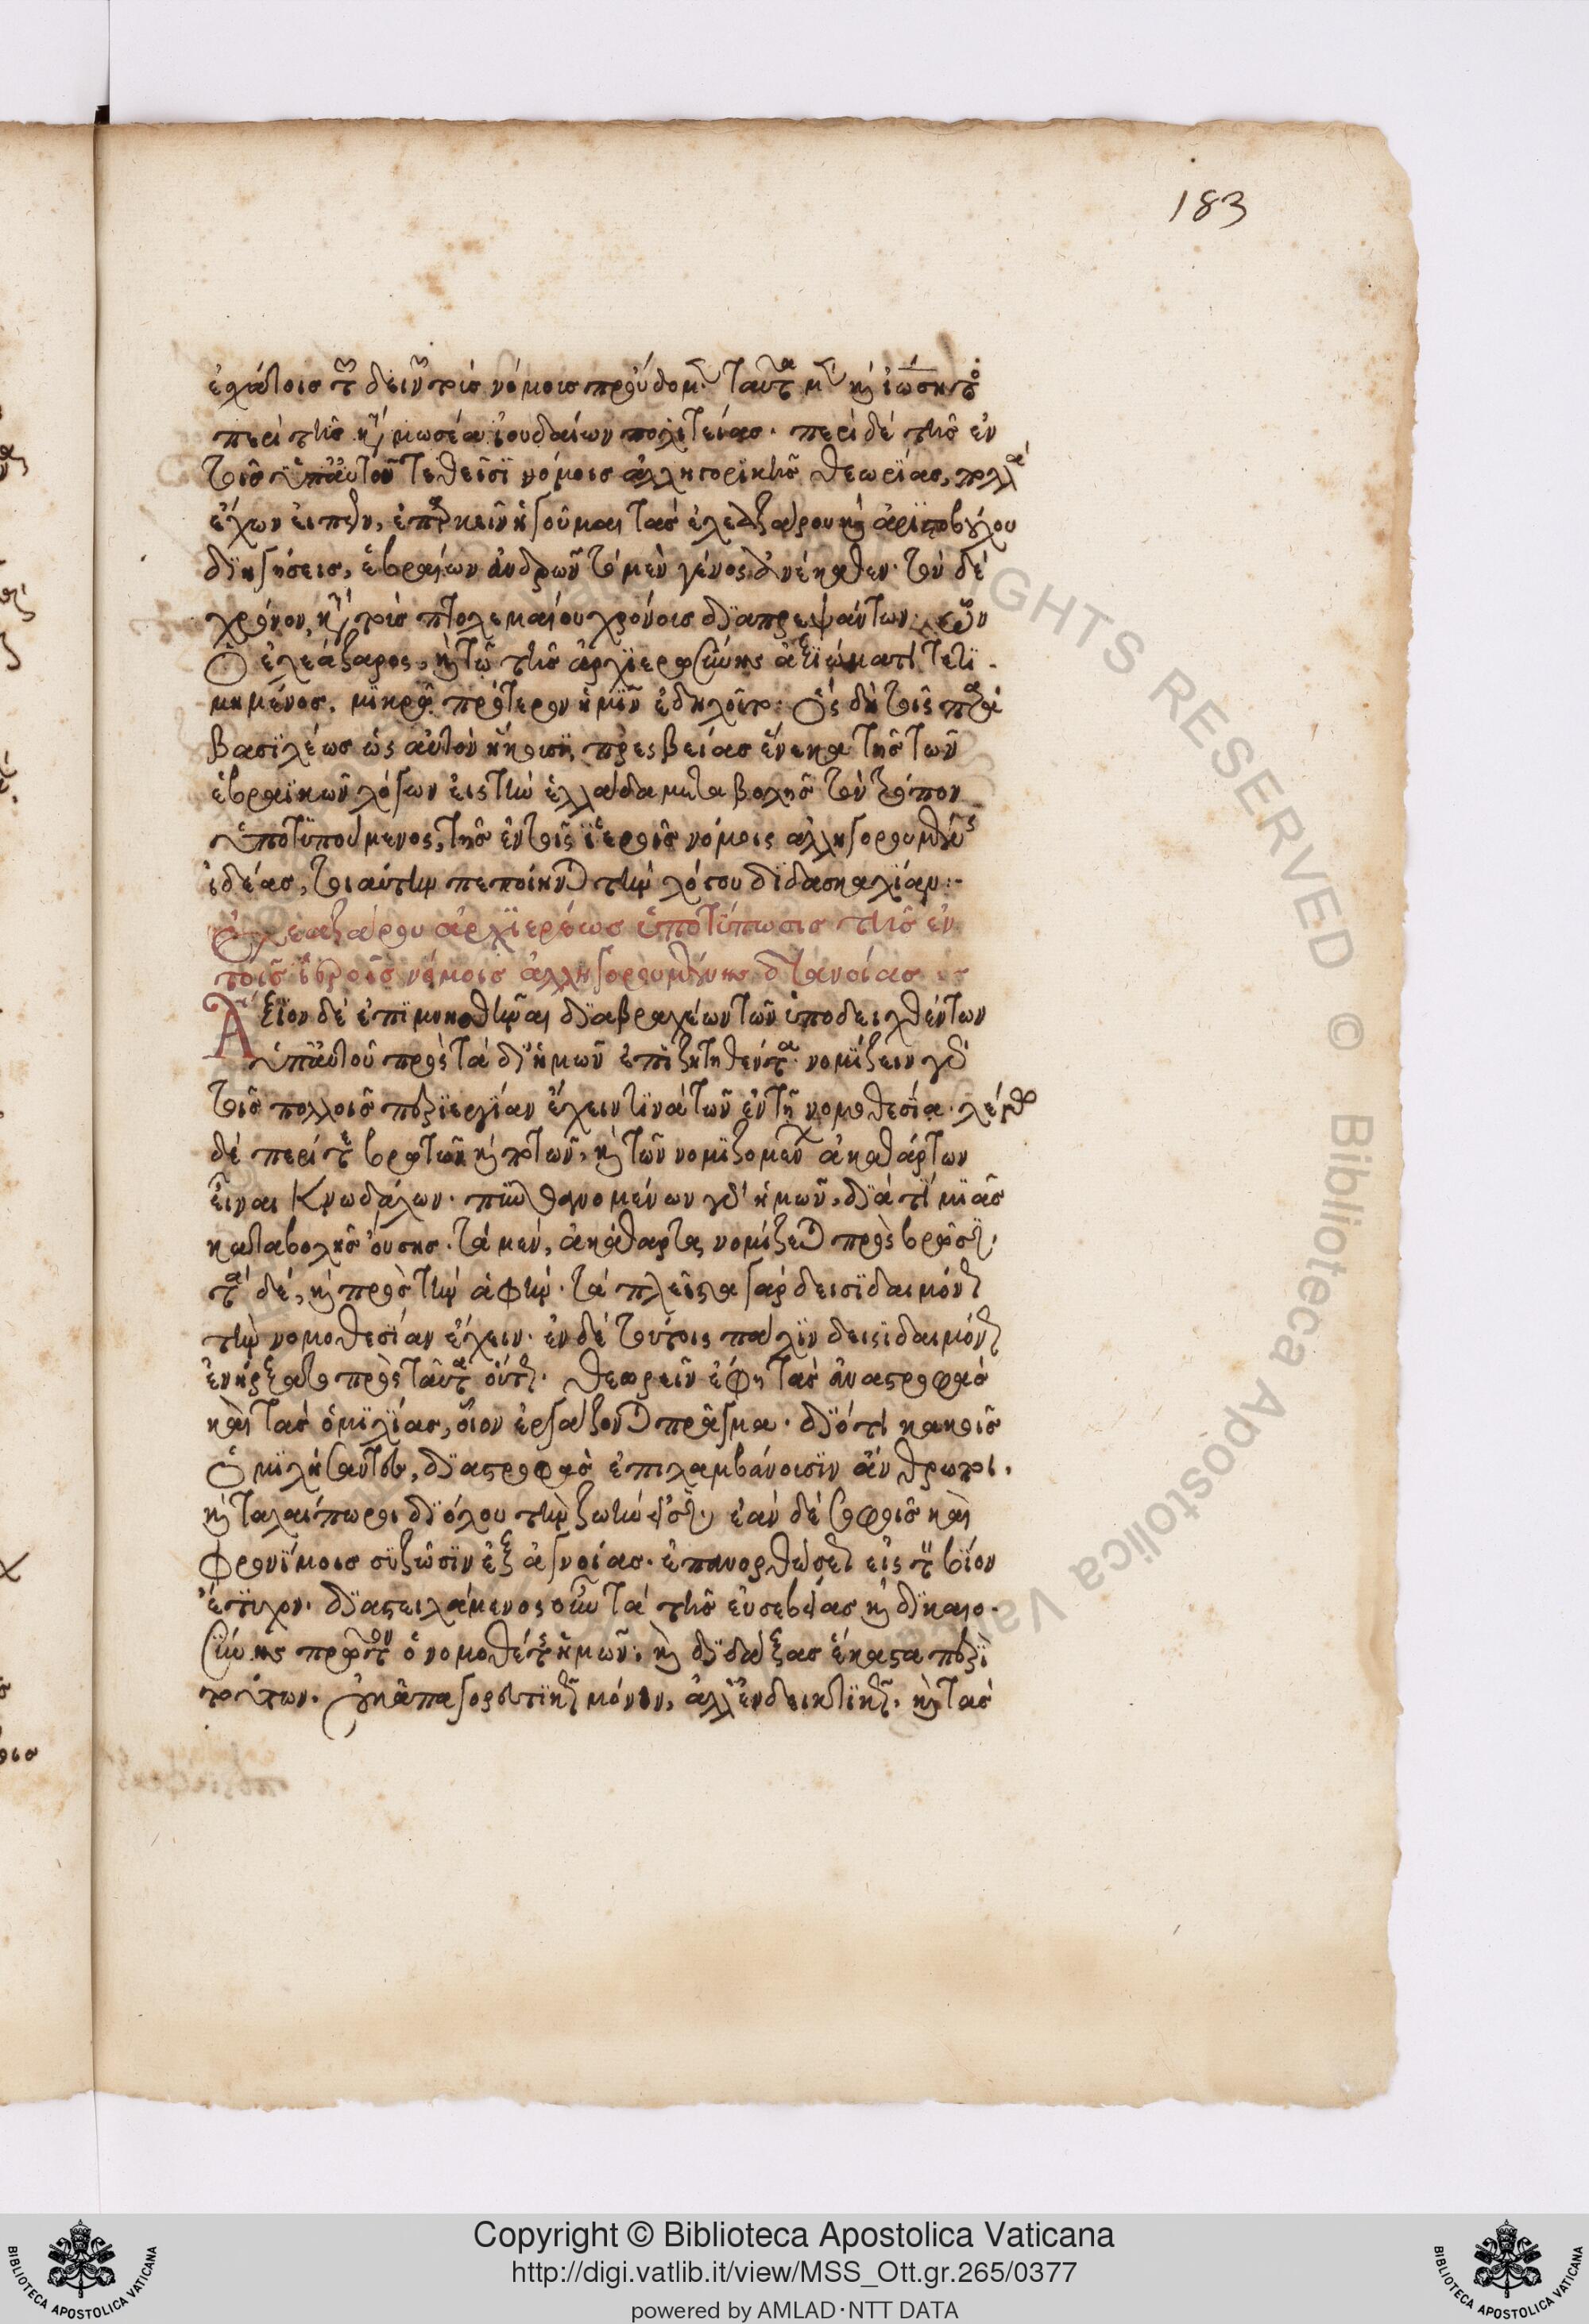 183
ἐχάτοις τῶν δεινῶν τοῖς νόμοις προύθομεν ταῦτα μὲν καὶ ἰώσηπος
περὶ τῆς κατὰ μωσέα ἰουδαίων πολιτείας. περὶ δὲ τῆς ἐν
τοῖς ὑπ' αὐτοῦ τεθεῖσι νόμοις ἀλληγορικῆς θεωρίας, πολλὰ
ἔχων εἰπεῖν, ἐπαρκεῖν ἡγοῦμαι τὰς ἐλεαζάρου καὶ ἀριστοβούλου
διηγήσεις, ἑβραίων ἀνδρῶν τὸ μὲν γένος ἀνέκαθεν. τὸν δὲ
χρόνον, κατὰ τοὺς πτολεμαίου χρόνοις διαπρεψάντων. ὧν
Ὁ ἐλεάζαρος, καὶ τῷ τῆς ἀρχιερωσύνης ἀξιώματι τετι
μημένος, μικρῷ πρότερον ἡμῖν ἐδηλοῦτο. Ὃς δὴ τοῖς παρὰ
βασιλέως ὡς αὐτὸν ἥκουσι πρεσβείας ἕνεκα τῆς τῶν
ἑβραϊκῶν λόγων εἰς τὴν ἑλλάδα μεταβολῆς τὸν τρόπον
ὑποτυπούμενος, τῆς ἐν τοῖς ἱεροῖς νόμοις ἀλληγορουμένης
ἰδέας, τοιαύτην πεποίηται τὴν λόγου διδασκαλίαν:-
Ἐλεαζάρου ἀρχιερέως ὑποτύπωσις τῆς ἐν
τοῖς ἱεροῖς νόμοις ἀλληγορουμένης διανοίας
Ἄξιον δὲ ἐπιμνησθῆναι διαβραχέων τῶν ὑποδειχθέντων
ὑπ' αὐτοῦ πρὸς τὰ δι' ἡμῶν ἐπιζητηθέντα. νομίζειν γὰρ
τοῖς πολλοῖς περιεργίαν ἔχειν τινὰ τῶν ἐν τῇ νομοθεσίᾳ. λέγω
δὲ περί τε βρωτῶν καὶ ποτῶν, καὶ τῶν νομιζομένων ἀκαθάρτων
εἶναι κνωδάλων. πυνθανομένων γὰρ ἡμῶν, διὰ τί μιᾶς
καταβολῆς οὔσης. τὰ μὲν, ἀκάθαρτα νομίζεται πρὸς βρῶσιν,
τὰ δὲ, καὶ πρὸς τὴν ἁφήν. τὰ πλεῖστα γὰρ δεισιδαιμόνως
τὴν νομοθεσίαν ἔχειν. ἐν δὲ τούτοις πάλιν δεισιδαιμόνως
ἐνήρξατο πρὸς ταῦτα οὕτως. θεωρεῖν ἔφη τὰς ἀναστροφὰς
καὶ τὰς ὁμιλίας, οἷον ἐργάζονται πρᾶγμα. διότι κακοῖς
Ὁμιλήσαντες, διαστροφὰς ἐπιλαμβάνουσιν ἄνθρωποι.
καὶ ταλαίπωροι δι' ὅλου τὴν ζωήν εἰσιν. ἐὰν δὲ σοφοῖς καὶ
φρονίμοις συζῶσιν ἐξ ἀγνοίας. ἐπανορθώσεως εἰς τὸν βίον
ἔστυχον. διαστειλάμενος οὖν τὰ τῆς εὐσεβείας καὶ δικαιο
σύνης πρῶτον ὁ νομοθέτης ἡμῶν, καὶ διδάξας ἕκαστα περὶ
τούτων. οὐκ ἀπαγορευτικῶς μόνον, ἀλλ' ἐνδεικτικῶς. καὶ τὰς
RIGHTS RESERVED © Biblioteca Apostolica Vaticana
Copyright © Biblioteca Apostolica Vaticana
http://digi.vatlib.it/view/MSS_Ott.gr.265/0377
powered by AMLAD·NTT DATA
BIBLIOTECA APOSTOLICA VATICANA
BIBLIOTECA APOSTOLICA VATICANA